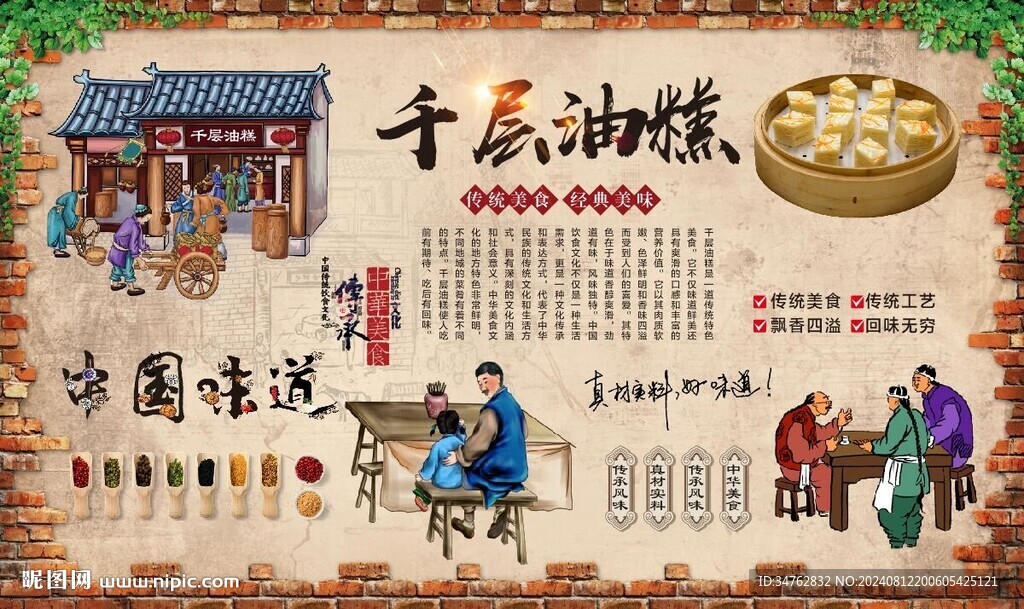 千层油糕
千层油糕
传统美食 经典美味
千层油糕是一道传统特色
美食。它不仅味道鲜美还
具有爽滑的口感和丰富的
营养价值。它以其肉质软
嫩、色泽鲜明和香味四溢
而受到人们的喜爱。其特
色在于味道香醇爽滑，劲
道有味，风味独特。中国
饮食文化不仅是一种生活
需求，更是一种文化传承
和表达方式，代表了中华
民族的传统文化和生活方
式，具有深刻的文化内涵
和社会意义。中华美食文
化的地方特色非常鲜明，
不同地域的菜肴有着不同
的特点。千层油糕使人吃
前有期待、吃后有回味。
传统美食 传统工艺
飘香四溢 回味无穷
中国传统饮食文化
传承
中華美食
文化
中国味道
真材实料,好味道!
传承风味
真材实料
传承风味
中华美食
昵图网 www.nipic.com
ID:34762832 NO:20240812200605425121